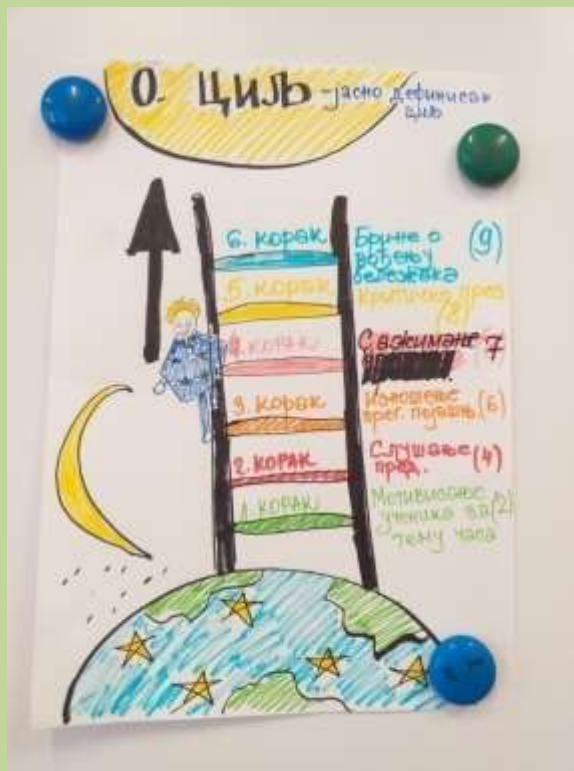 О. ЦИЉ - јасно дефинисан
циљ
6. КОРАК Бриње о (9)
вођењу
бележака
5. КОРАК Критички
4. КОРАК Сажимање 7
3. КОРАК Изношење
(6)
2. КОРАК Слушање (4)
пред.
1. КОРАК Мотивисање
ученика за (2)
тему часа